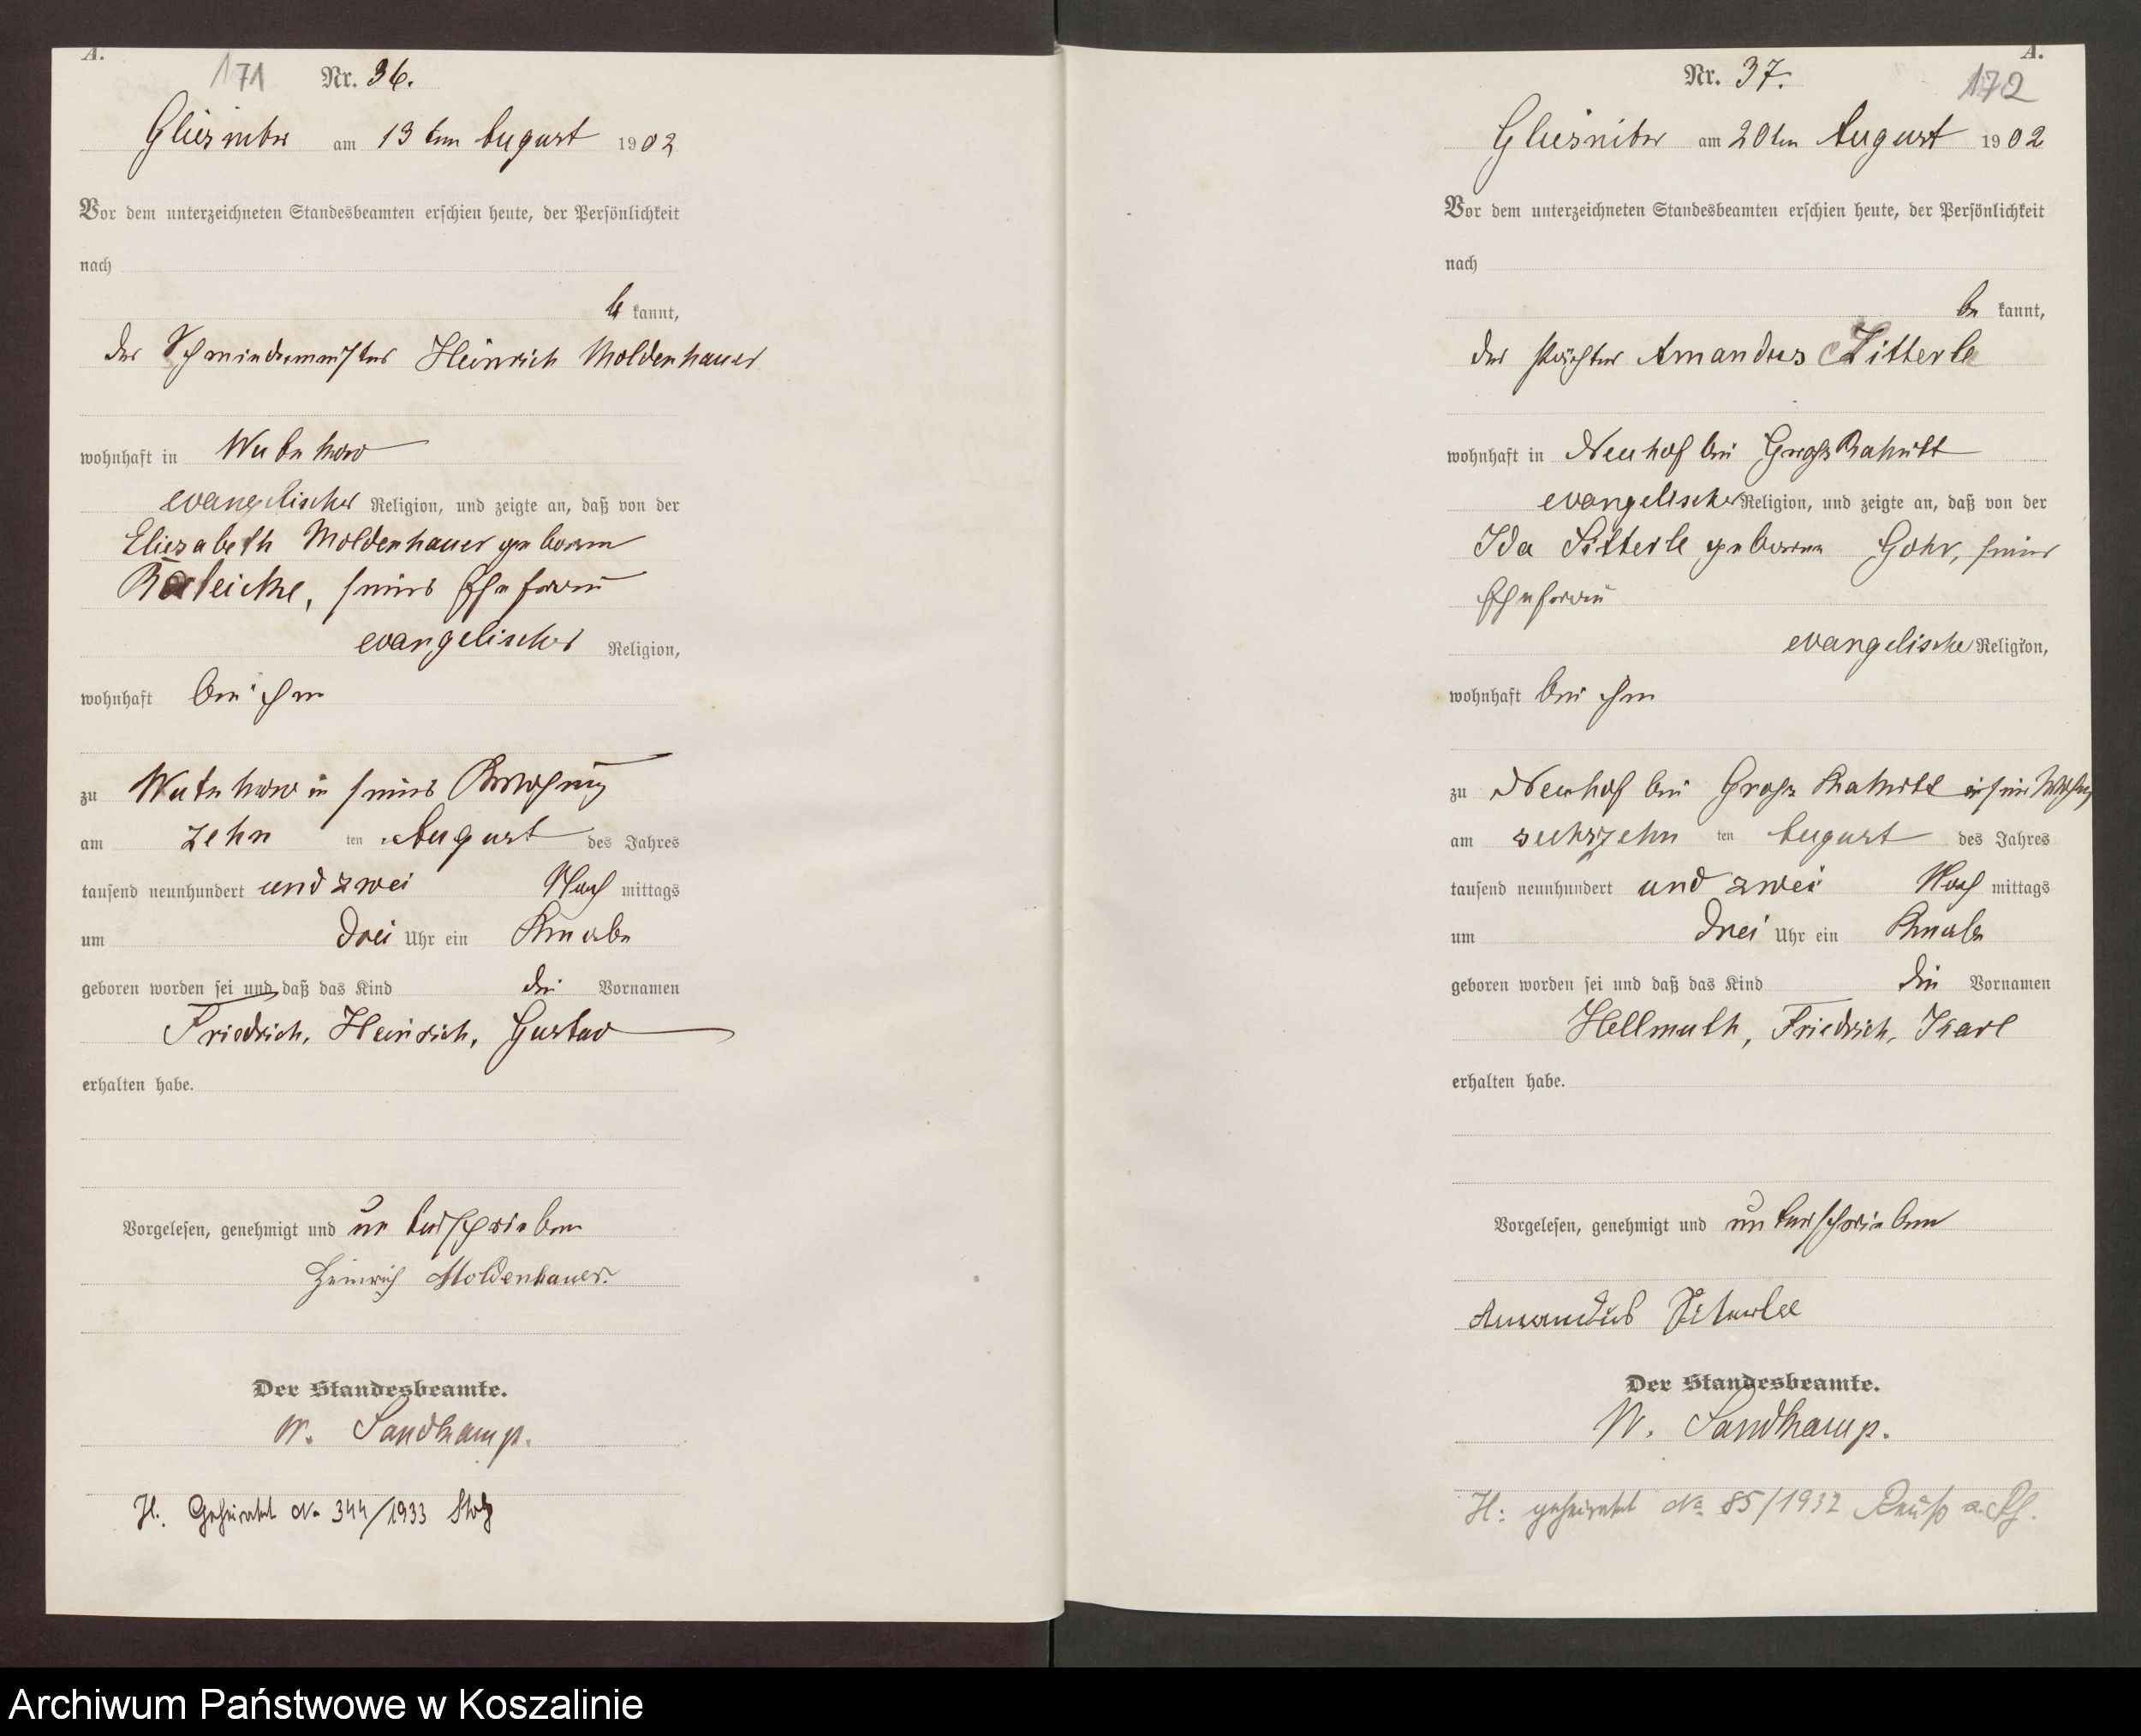 A.
171 Nr. 36.
am 13ten August 1902
Vor dem unterzeichneten Standesbeamten erschien heute, der Persönlichkeit
nach
be kannt,
der Heinrich Moldenhauer
wohnhaft in
evangelischer Religion, und zeigte an, daß von der
Eliesabeth Moldenhauer geborene
seiner Ehefrau
evangelischer Religion,
wohnhaft bei ihm
zu in seiner
am zehn ten August des Jahres
tausend neunhundert und zwei Nach mittags
um drei Uhr ein Knabe
geboren worden sei und daß das Kind die Vornamen
Friedrich, Heinrich, Gustav
erhalten habe.
Vorgelesen, genehmigt und unterschrieben
Heinrich Moldenhauer.
Der Standesbeamte.
W. Sandkamp.
H. Geheiratet No 344/1933 Stolp
A.
Nr. 37. 172
am 20ten August 1902
Vor dem unterzeichneten Standesbeamten erschien heute, der Persönlichkeit
nach
be kannt,
der Pächter Amandus Zitterle
wohnhaft in Neuhof bei Groß Rakitt
evangelischer Religion, und zeigte an, daß von der
Ida Zitterle geborene Gohr, seiner
Ehefrau
evangelischer Religion,
wohnhaft bei ihm
zu Neuhof bei Groß Rakitt in seiner Wohnung
am sechszehn ten August des Jahres
tausend neunhundert und zwei Nach mittags
um drei Uhr ein Knabe
geboren worden sei und daß das Kind die Vornamen
Hellmuth, Friedrich, Karl
erhalten habe.
Vorgelesen, genehmigt und unterschrieben
Amandus
Der Standesbeamte.
W. Sandkamp.
H: geheiratet No 85/1932
Archiwum Państwowe w Koszalinie